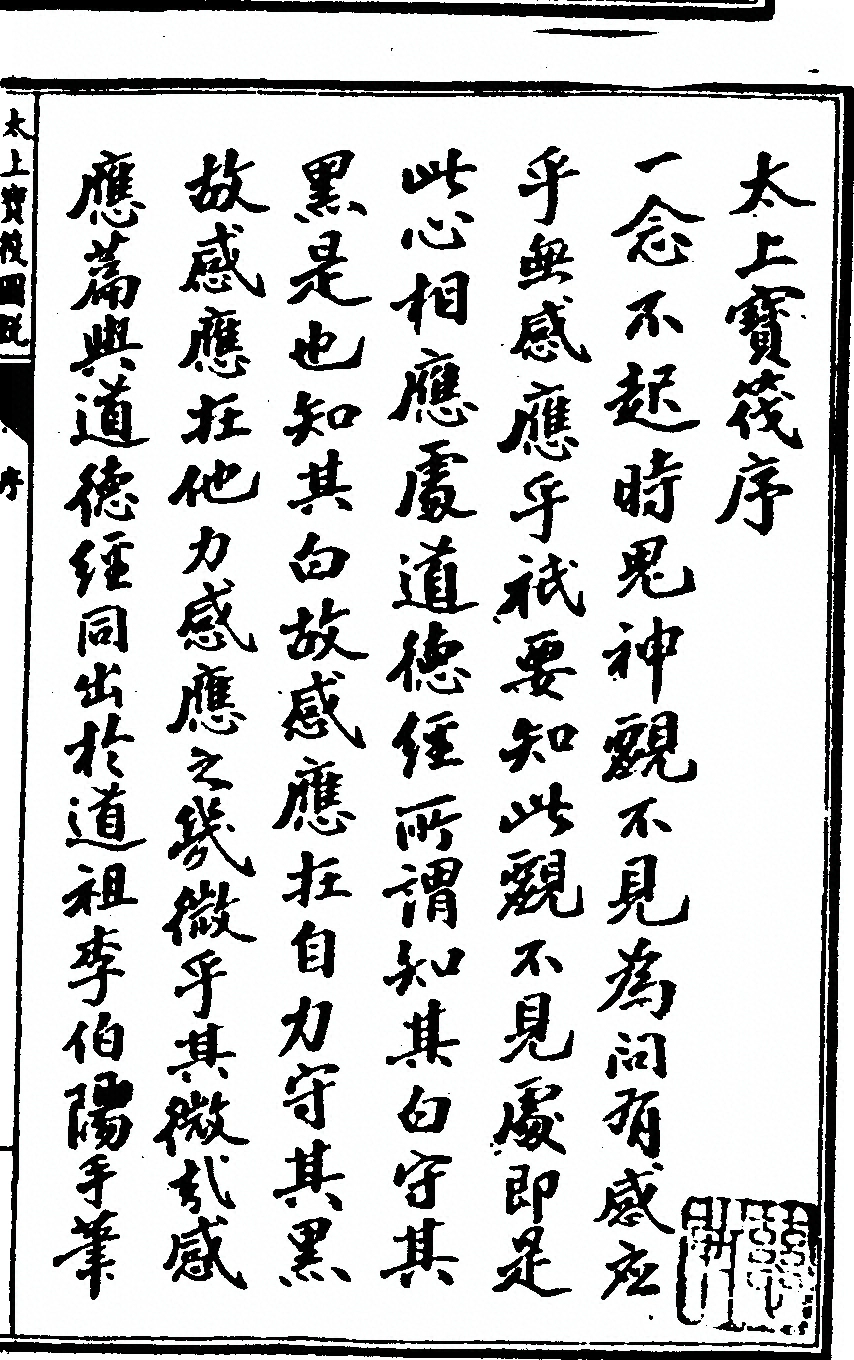 太上寶筏序
一念不起時鬼神覷不見為問有感应
乎無感應乎祇要知此覷不見處即是
此心相應處道德經所謂知其白守其
黑是也知其白故感應在自力守其黑
故感應在他力感應之幾微乎其微哉感
應篇與道德經同出於道祖李伯陽手筆
太上寶筏圖說
序